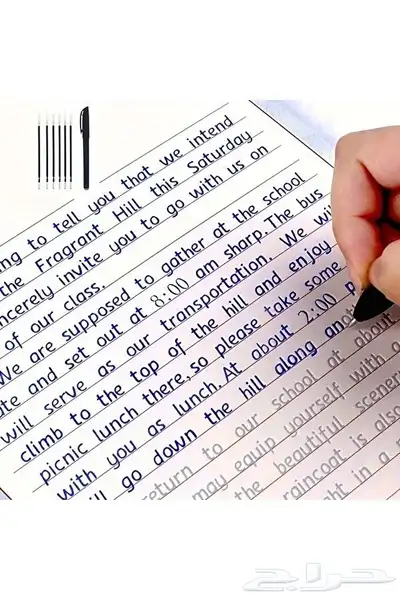 ng to tell you that we intend
the Fragrant Hill this Saturday
ncerely invite you to go with us on
of our class.
We are supposed to gather at the school
te and set out at 8:00 am sharp. The bus
will serve as our transportation. We wi
climb to the top of the hill and enjoy
picnic lunch there, so please take some
with you as lunch. At about 2:00 p
ll go down the hill along an
return to our school at about
may equip yourself with a
the beautiful scener
raincoat is also
ht in a
حراج